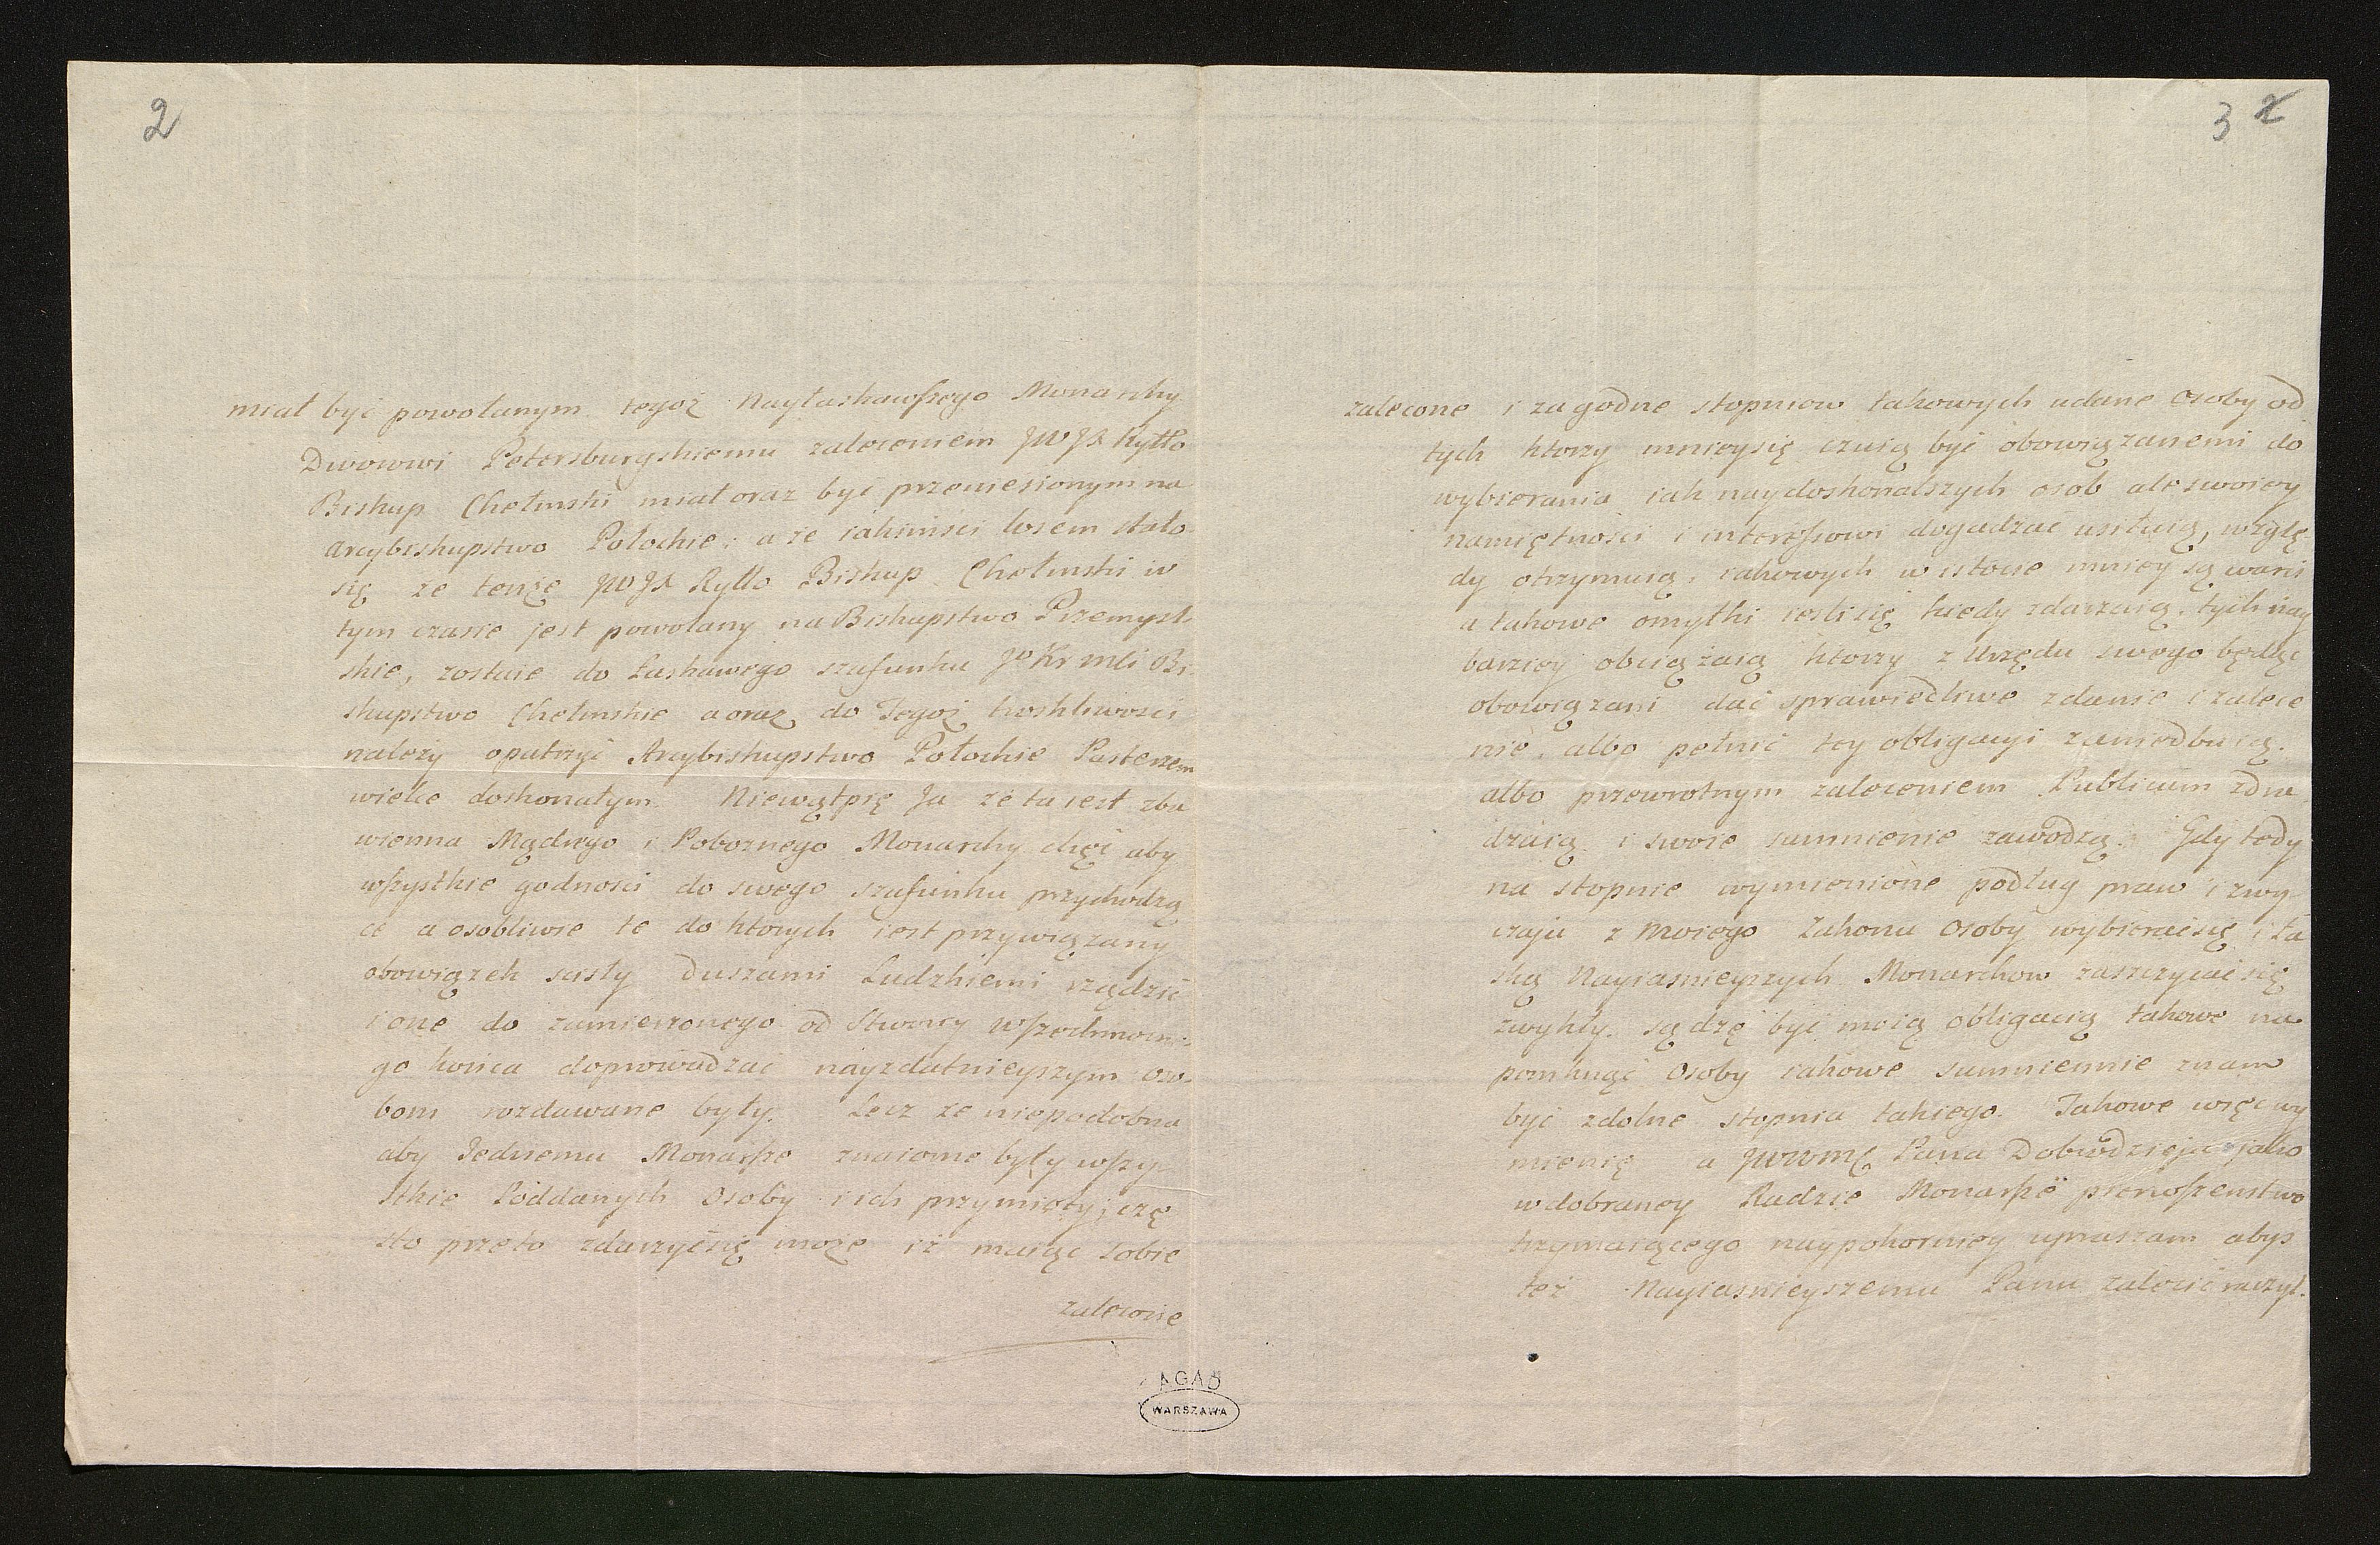 2
miał być powołanym tegoż Nayłaskawszego Monarchy
Dworowi Petersburgskiemu zaleceniem JWJX Ryłło
Biskup Chełmski miał oraz być przeniesionym na
Arcybiskupstwo Połockie; a że iakimsci losem stało
się ze tenże JWJX Ryllo Biskup Chełmski w
tym czasie jest powołany na Biskupstwo Przemysl-
skie, zostaie do Łaskawego szafunku JO Kr Mli Bi-
skupstwo Chełmskie a oraz do Tegoż troskliwosci
należy opatrzyć Arcybiskupstwo Połockie Pasterzem
wielce doskonałym. Niewątpię Ja że ta iest zba
wienna Mądrego i Pobożnego Monarchy chęć aby
wszystkie godnosci do swego szafunku przychodzą
ce a osobliwie te do ktorych iest przywiązany
obowiązek sisty Duszami Ludzkiemi rządzić
i one do zamierzonego od Stworcy Wszechmocne-
go końca doprowadzać nayzdatnieyszym oso-
bom rozdawane były. Lecz ze niepodobna
aby Jednemu Monarsze znaiome były wszy-
stkie Poddanych Osoby i ich przymioty; czę
sto przeto zdarzyć się może iż maiąc sobie
zalecone
AGAD
WARSZAWA
3 2
zalecone i za godne stopniow takowych udane osoby od
tych ktorzy mniey się czuią być obowiązanemi do
wybierania iak naydoskonalszych osob ale swoiey
namiętności i interessowi dogadzać usiłuią, wzglę
dy otrzymuią, iakowych w istocie mniey są warci
a takowe omyłki iesli się kiedy zdarzaią, tych nay
barziey obciążaią ktorzy z Urzędu swego będąc
obowiązani dać sprawiedliwe zdanie i zalece
nie, albo pełnić tey obligacyi zaniedbuią,
albo przewrotnym zaleceniem Publicum zdra
dzaią i swoie sumnienie zawodzą. Gdy tedy
na stopnie wymienione podług praw i zwy
czaju z Moiego Zakonu Osoby wybierać się i ła
ską Nayiasnieyszych Monarchow zaszczycać się
zwykły. sądzę być moią obligacią takowe na
pomknąć Osoby iakowe sumniennie znam
być zdolne stopnia takiego. Takowe więc wy
mienię a JWWMC Pana Dobrodzieja jako
w dobraney Radzie Monarsze pierwszenstwo
trzymaiącego naypokorniey upraszam abys
też Nayiasnieyszemu Panu zalecić raczył.